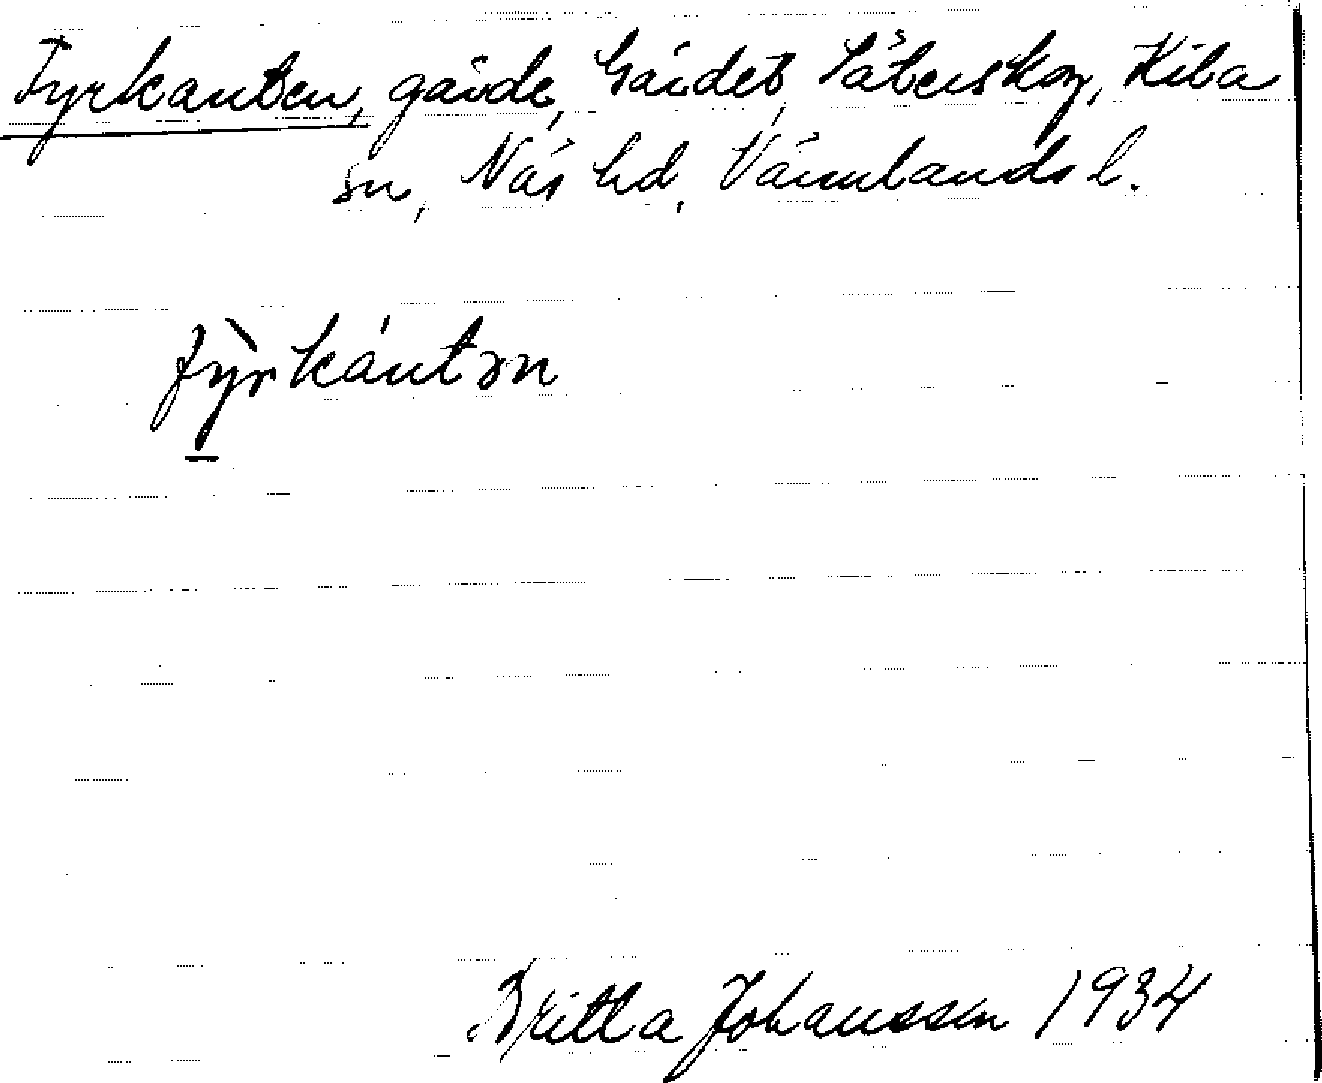 Fyrkanten, gärde, Gärdet, Såterskog, Kila
sn, Näs hd, Värmlands l.
fỳ̱rkántən
Britta Johansson 1934